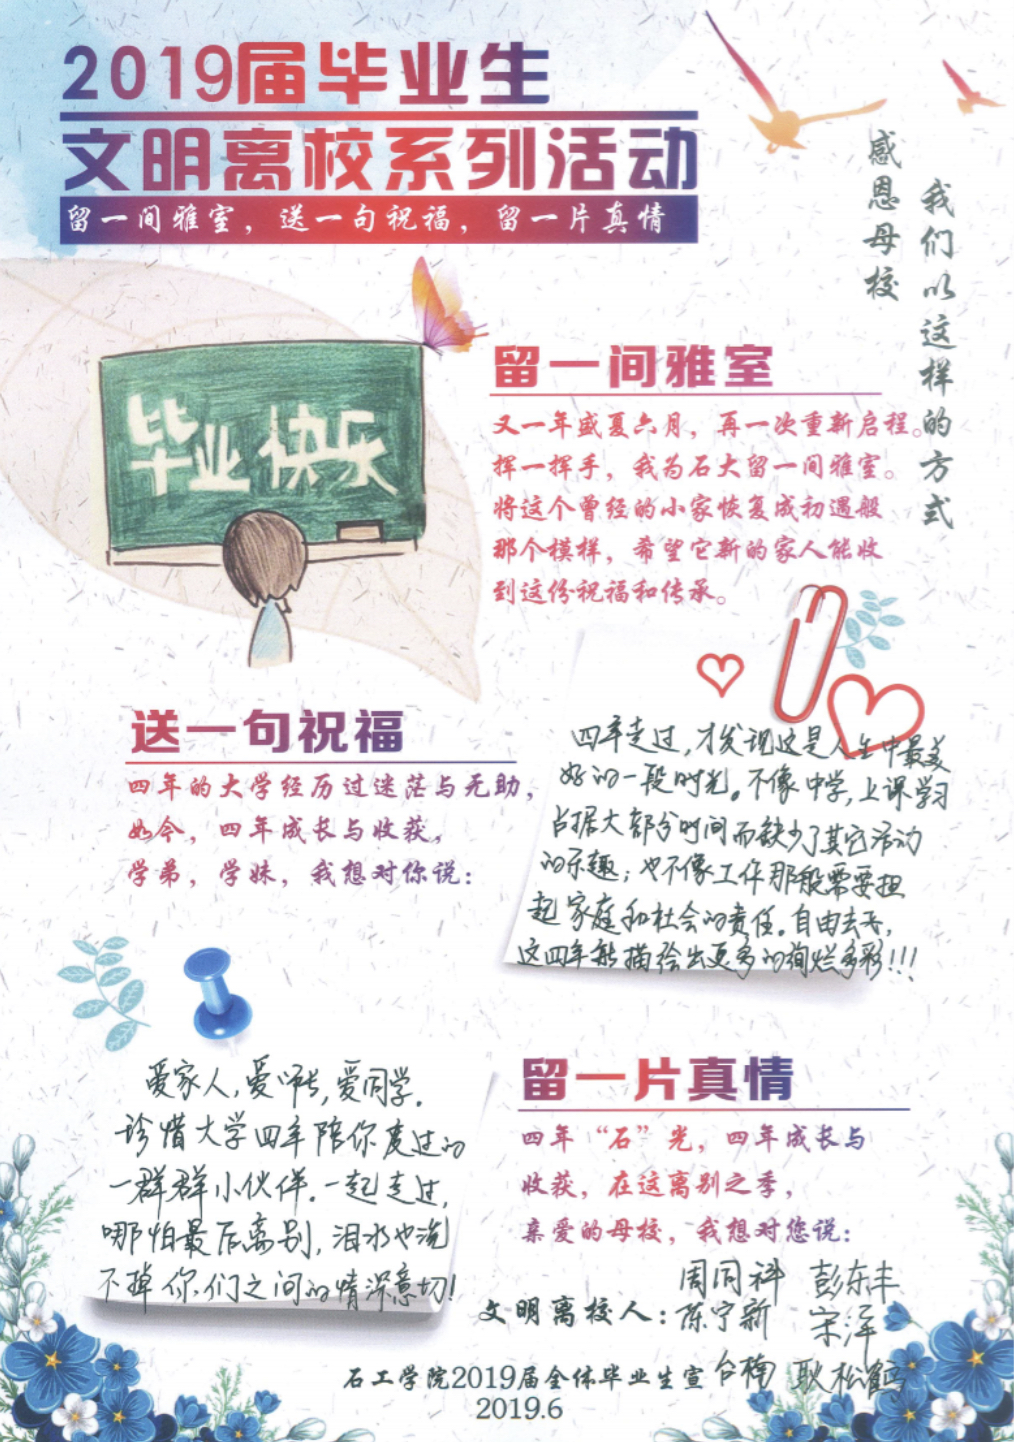 2019届毕业生
文明离校系列活动
留一间雅室，送一句祝福，留一片真情
我们以这样的方式
感恩母校
毕业快乐
留一间雅室
又一年盛夏六月，再一次重新启程。
挥一挥手，我为石大留一间雅室。
将这个曾经的小家恢复成初遇般
那个模样，希望它新的家人能收
到这份祝福和传承。
送一句祝福
四年的大学经历过迷茫与无助，
如今，四年成长与收获，
学弟，学妹，我想对你说：
四年走过,才发现这是人生中最美
好的一段时光。不像中学,上课学习
占据大部分时间而缺少了其它活动
的乐趣;也不像工作那般需要担
起家庭和社会的责任。自由去乐,
这四年能描绘出更多的绚烂多彩!!!
爱家人,爱师长,爱同学.
珍惜大学四年陪你度过的
一群群小伙伴.一起走过,
哪怕最后离别,泪水也流
不掉你们之间的情深意切!
留一片真情
四年“石”光，四年成长与
收获，在这离别之季，
亲爱的母校，我想对您说：
文明离校人：周同科 彭东丰
陈宁新 宋洋
台楠 耿松鹤
石工学院2019届全体毕业生宣
2019.6